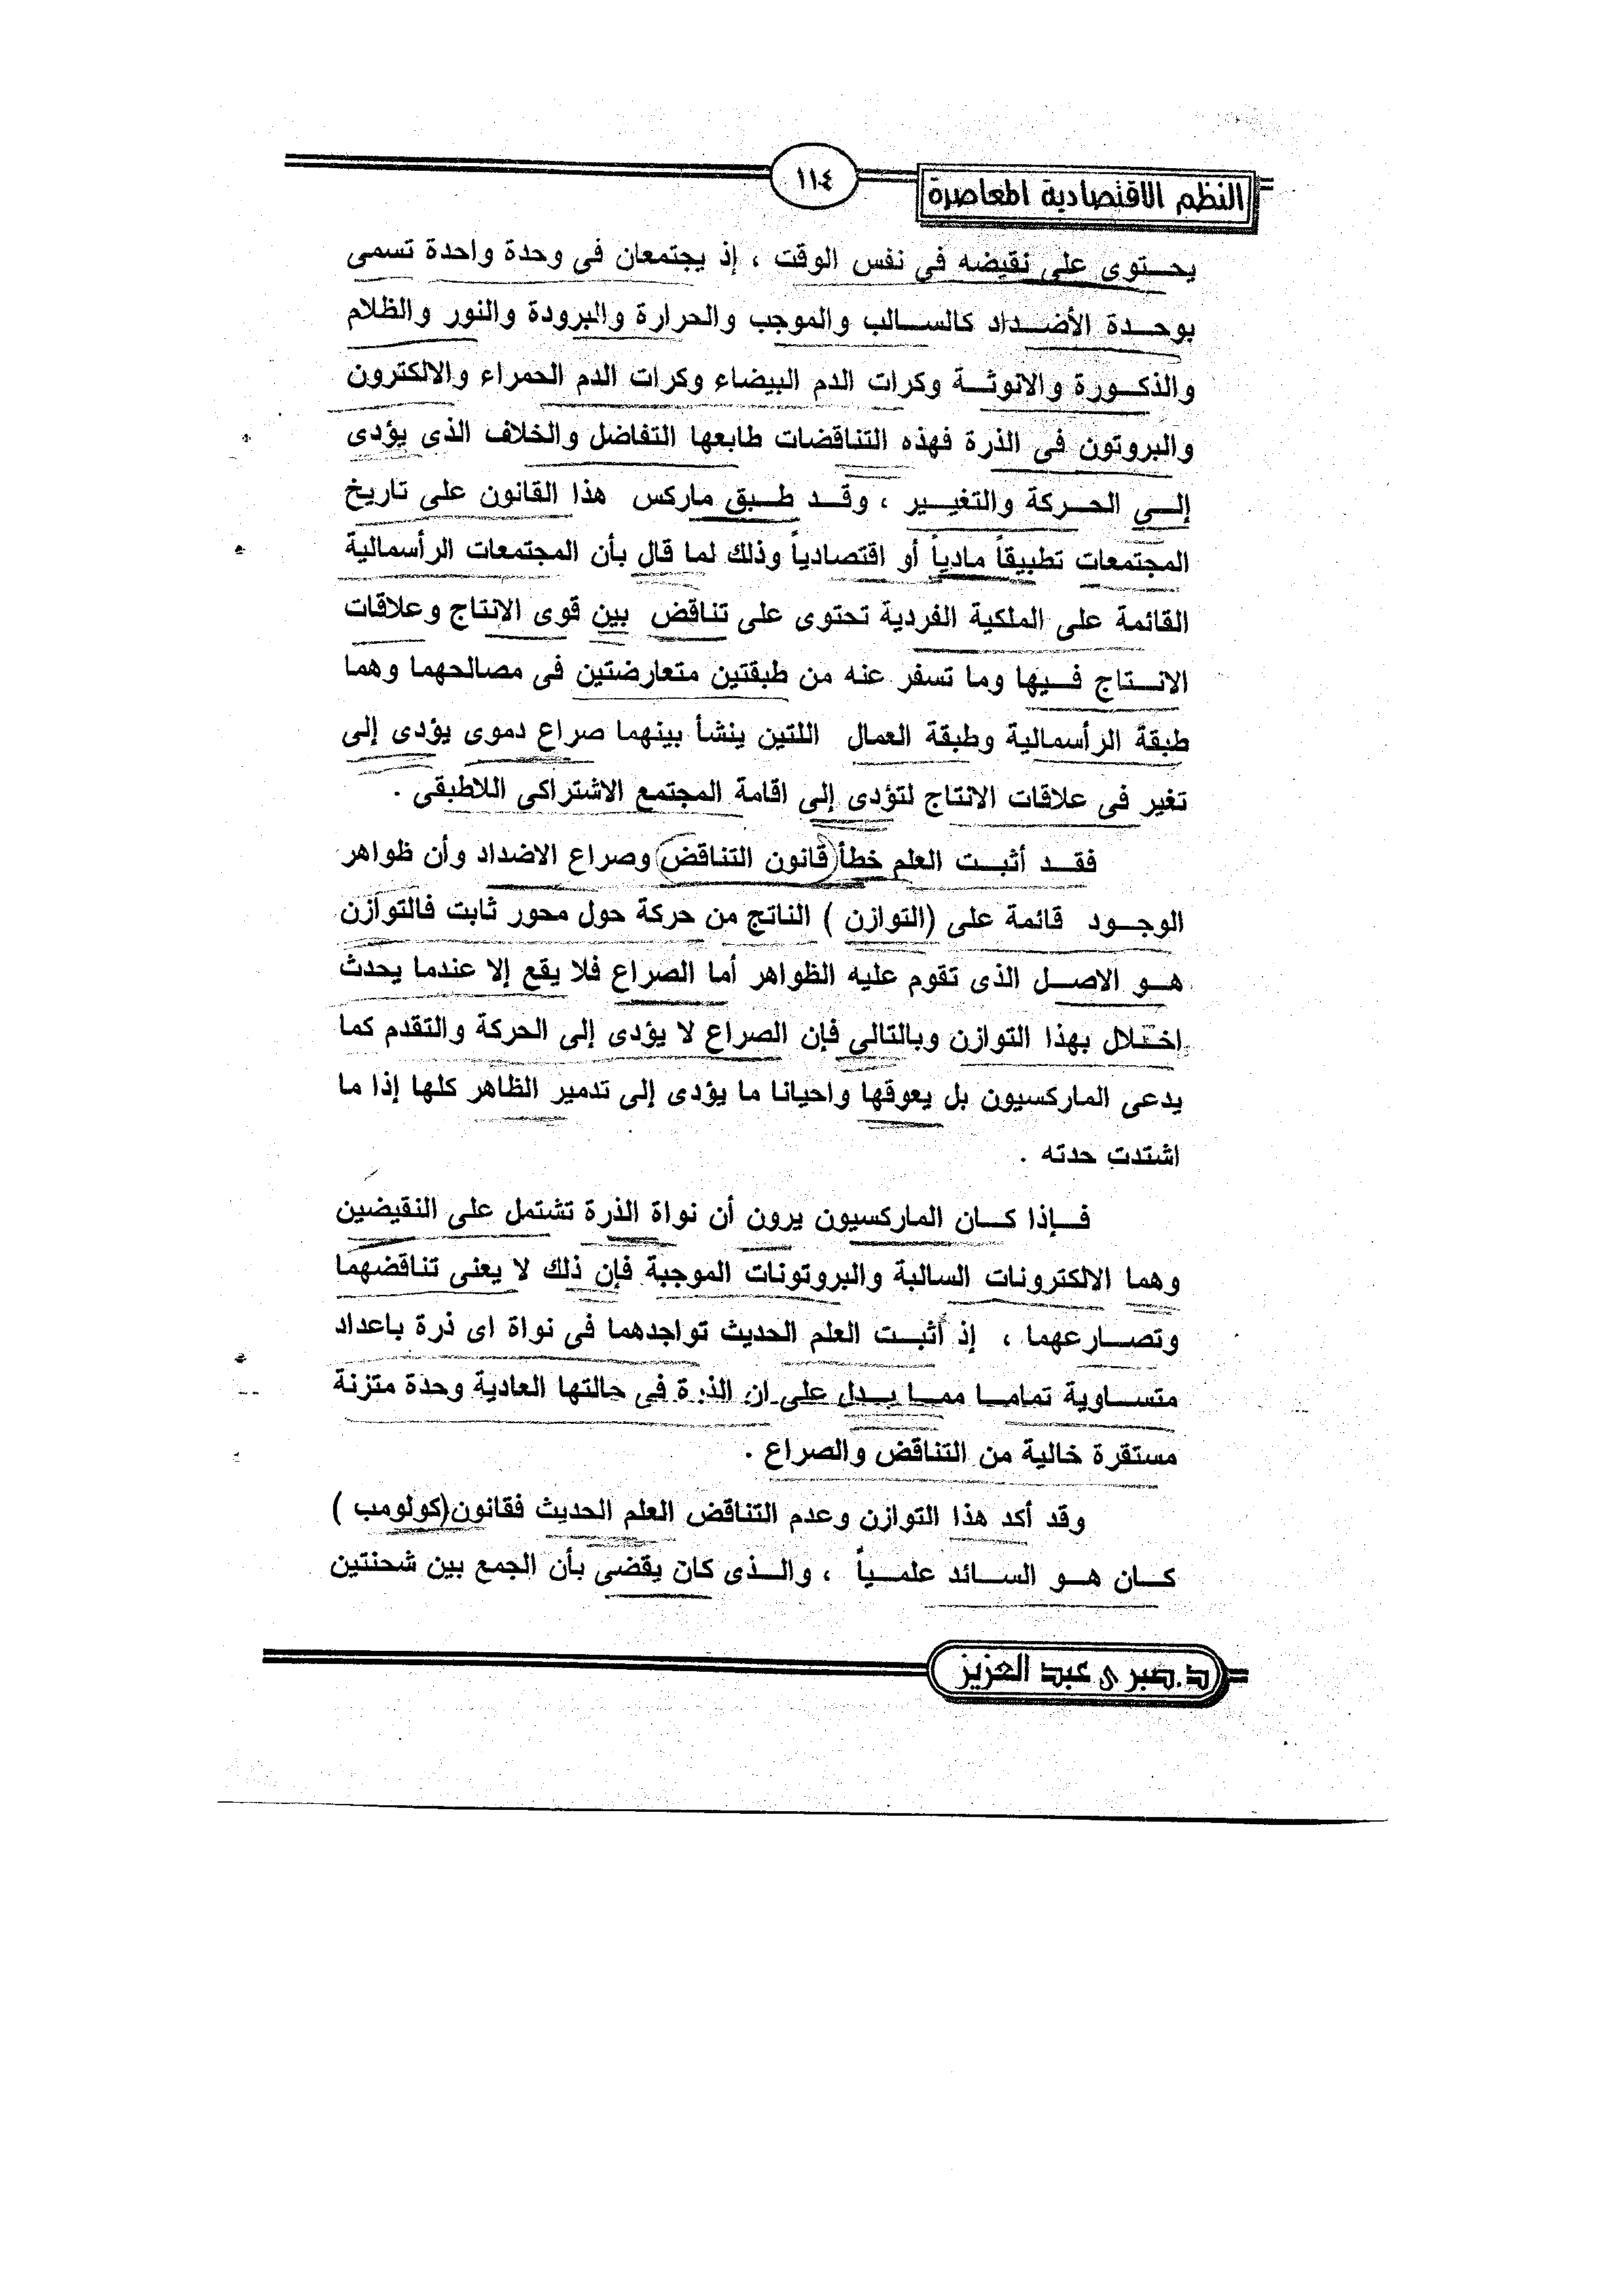 النظم الاقتصادية المعاصرة
١١٤
يحتوى على نقيضه فى نفس الوقت ، إذ يجتمعان فى وحدة واحدة تسمى
بوحدة الأضداد كالسالب والموجب والحرارة والبرودة والنور والظلام
والذكورة والانوثة وكرات الدم البيضاء وكرات الدم الحمراء والالكترون
والبروتون فى الذرة فهذه التناقضات طابعها التفاضل والخلاف الذى يؤدى
إلى الحركة والتغيير ، وقد طبق ماركس هذا القانون على تاريخ
المجتمعات تطبيقاً مادياً أو اقتصادياً وذلك لما قال بأن المجتمعات الرأسمالية
القائمة على الملكية الفردية تحتوى على تناقض بين قوى الإنتاج وعلاقات
الانتاج فيها وما تسفر عنه من طبقتين متعارضتين فى مصالحهما وهما
طبقة الرأسمالية وطبقة العمال اللتين ينشأ بينهما صراع دموى يؤدى إلى
تغير فى علاقات الانتاج لتؤدى إلى اقامة المجتمع الاشتراكى اللاطبقى .
فقد أثبت العلم خطأ قانون التناقض وصراع الاضداد وأن ظواهر
الوجود قائمة على (التوازن ) الناتج من حركة حول محور ثابت فالتوازن
هو الاصل الذى تقوم عليه الظواهر أما الصراع فلا يقع إلا عندما يحدث
اختلال بهذا التوازن وبالتالى فإن الصراع لا يؤدى إلى الحركة والتقدم كما
يدعى الماركسيون بل يعوقها واحيانا ما يؤدى إلى تدمير الظاهر كلها إذا ما
اشتدت حدته .
فإذا كان الماركسيون يرون أن نواة الذرة تشتمل على النقيضين
وهما الالكترونات السالبة والبروتونات الموجبة فإن ذلك لا يعنى تناقضهما
وتصارعهما ، إذ أثبت العلم الحديث تواجدهما فى نواة اى ذرة باعداد
متساوية تماما مما يدل على ان الذرة فى حالتها العادية وحدة متزنة
مستقرة خالية من التناقض والصراع .
وقد أكد هذا التوازن وعدم التناقض العلم الحديث فقانون(كولومب )
كان هو السائد علمياً ، والذى كان يقضى بأن الجمع بين شحنتين
د.صبرى عبد العزيز